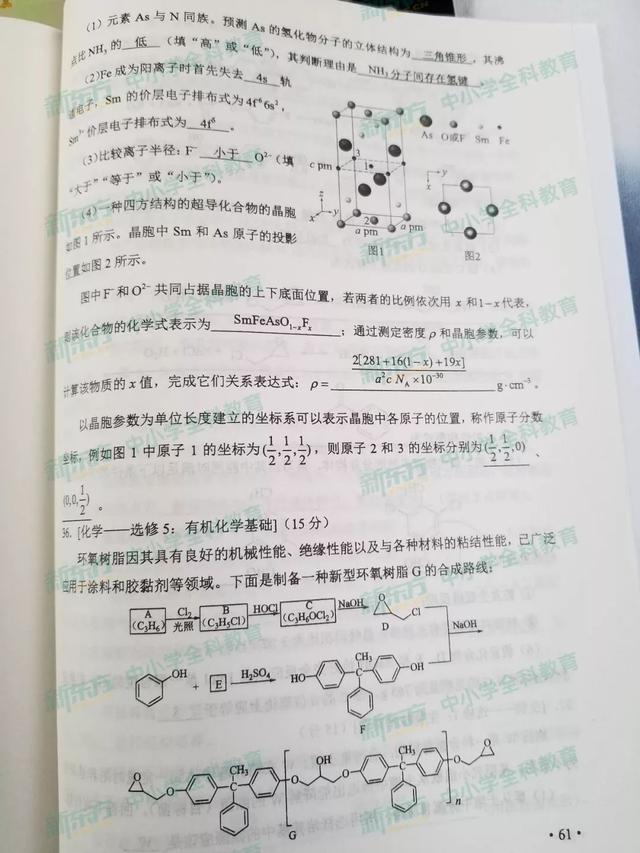 (1) 元素 As 与 N 同族。预测 As 的氢化物分子的立体结构为 三角锥形 ，其沸
点比NH₃的 低 （填“高”或“低”），其判断理由是 NH₃分子间存在氢键 。
(2)Fe 成为阳离子时首先失去 4s 轨
道电子，Sm 的价层电子排布式为4f⁶6s²，
Sm³⁺价层电子排布式为 4f⁵ 。
(3)比较离子半径：F⁻ 小于 O²⁻（填
“大于”“等于”或“小于”）。
(4)一种四方结构的超导化合物的晶胞
如图1所示。晶胞中 Sm 和 As 原子的投影
位置如图2所示。
c pm
3
1
2
a pm
a pm
z
x
y
图1
As O或F Sm Fe
x
y
图2
图中F⁻和O²⁻共同占据晶胞的上下底面位置，若两者的比例依次用 x 和1−x代表，
则该化合物的化学式表示为 SmFeAsO₁₋ₓFₓ ；通过测定密度ρ和晶胞参数，可以
计算该物质的 x 值，完成它们关系表达式：ρ= 2[281+16(1−x)+19x] / a²c N_A×10⁻³⁰ g·cm⁻³。
以晶胞参数为单位长度建立的坐标系可以表示晶胞中各原子的位置，称作原子分数
坐标，例如图1中原子1的坐标为(1/2,1/2,1/2)，则原子2和3的坐标分别为(1/2,1/2,0) 、
(0,0,1/2) 。
36. [化学——选修5：有机化学基础]（15分）
环氧树脂因其具有良好的机械性能、绝缘性能以及与各种材料的粘结性能，已广泛
应用于涂料和胶黏剂等领域。下面是制备一种新型环氧树脂 G 的合成路线：
A (C₃H₆) Cl₂ 光照 B (C₃H₅Cl) HOCl C (C₃H₆OCl₂) NaOH O Cl D
NaOH
OH + E H₂SO₄ HO CH₃ C OH F
O O CH₃ C O OH O CH₃ C O O n
G
·61·
新东方 中小学全科教育